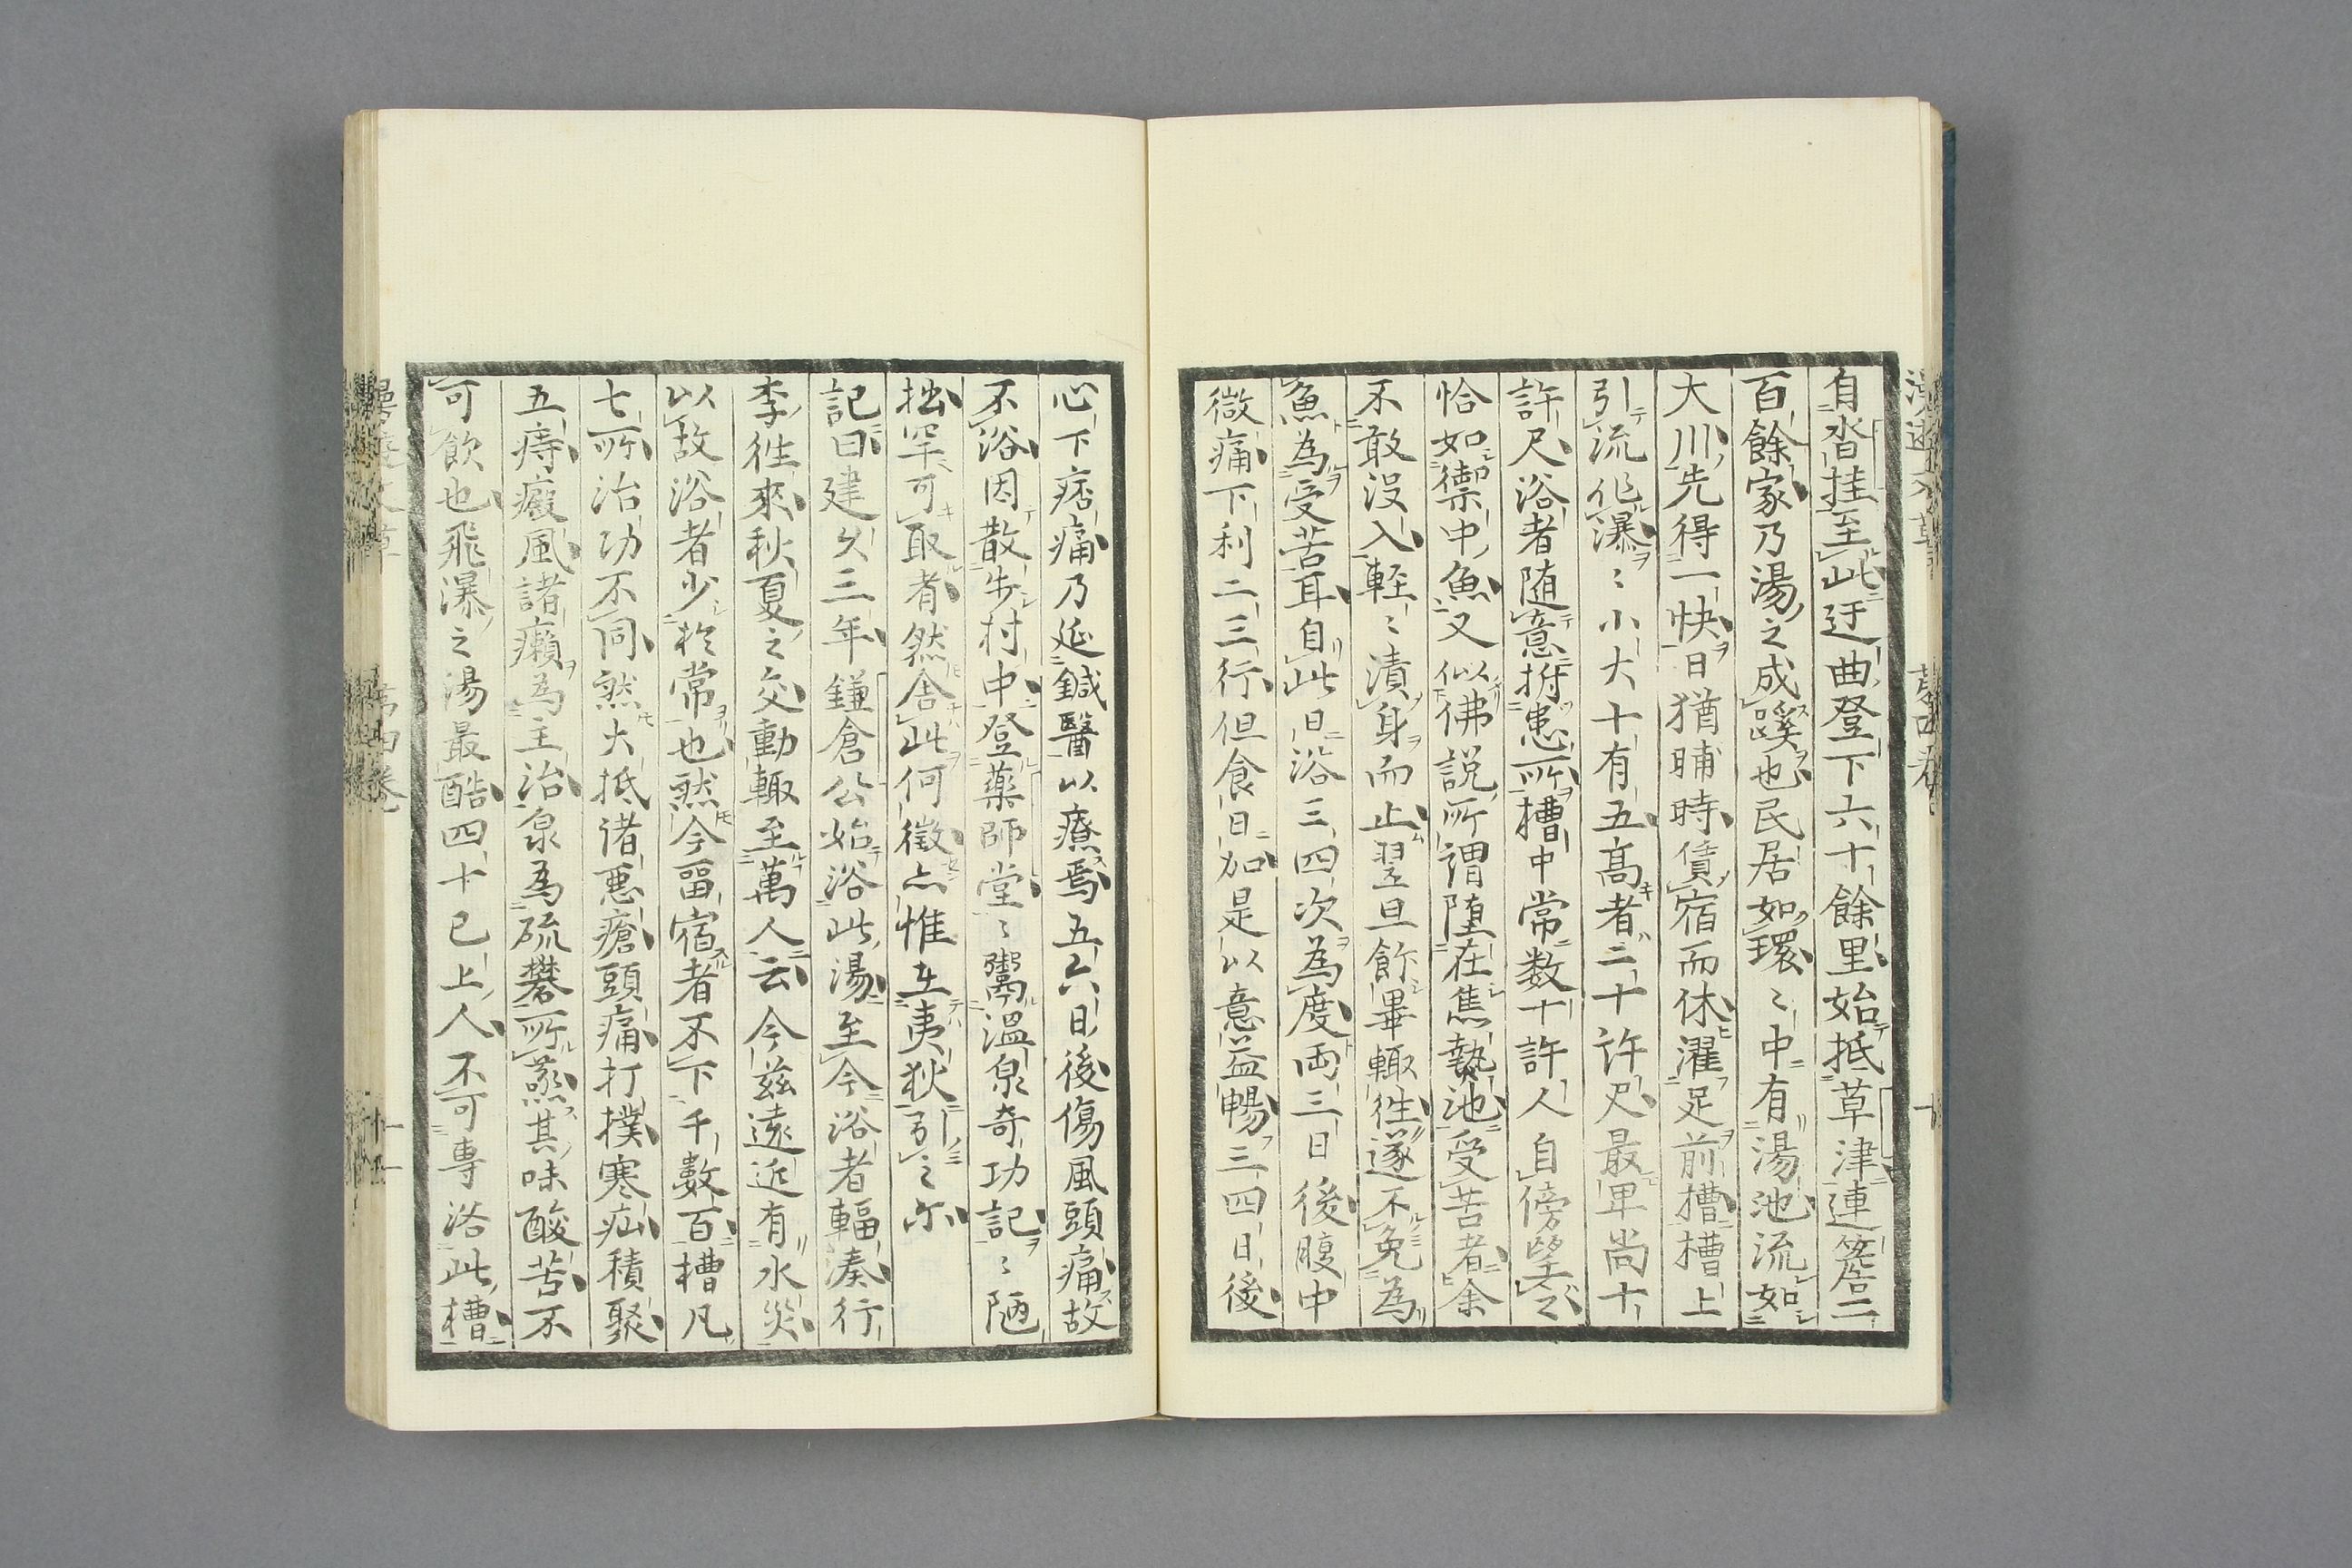 自沓挂至此迂曲登下六十餘里始抵草津連簷二
百餘家乃湯之成蹊也民居如環〻中有湯池流如
大川先得一快日猶晡時賃宿而休濯足前槽槽上
引流作瀑〻小大十有五高者二十許尺最卑尚十
許尺浴者随意拊患所槽中常数十許人自傍望之
恰如禦中魚又似佛説所謂墮在焦熱池受苦者余
不敢没入輕〻漬身而止翌旦飭畢輙徃遂不免為
魚為受苦耳自此日浴三四次為度両三日後腹中
微痛下利二三行但食日加是以意益暢三四日後
心下痞痛乃延鍼醫以療焉五六日後傷風頭痛故
不浴因散步村中登藥師堂〻鬻溫泉奇功記〻陋
拙罕可取者然舍此何徵亦惟在夷狄引之尔
記曰建久三年鎌倉公始浴此湯至今浴者輻湊行
李徃來秋夏之交動輙至萬人云今茲遠近有水災
以故浴者少於常也然今畱宿者不下千數百槽凡
七所治功不同然大抵诸惡瘡頭痛打撲寒疝積聚
五痔癜風諸癩為主治泉為硫礬所蒸其味酸苦不
可飲也飛瀑之湯最酷四十已上人不可專浴此槽